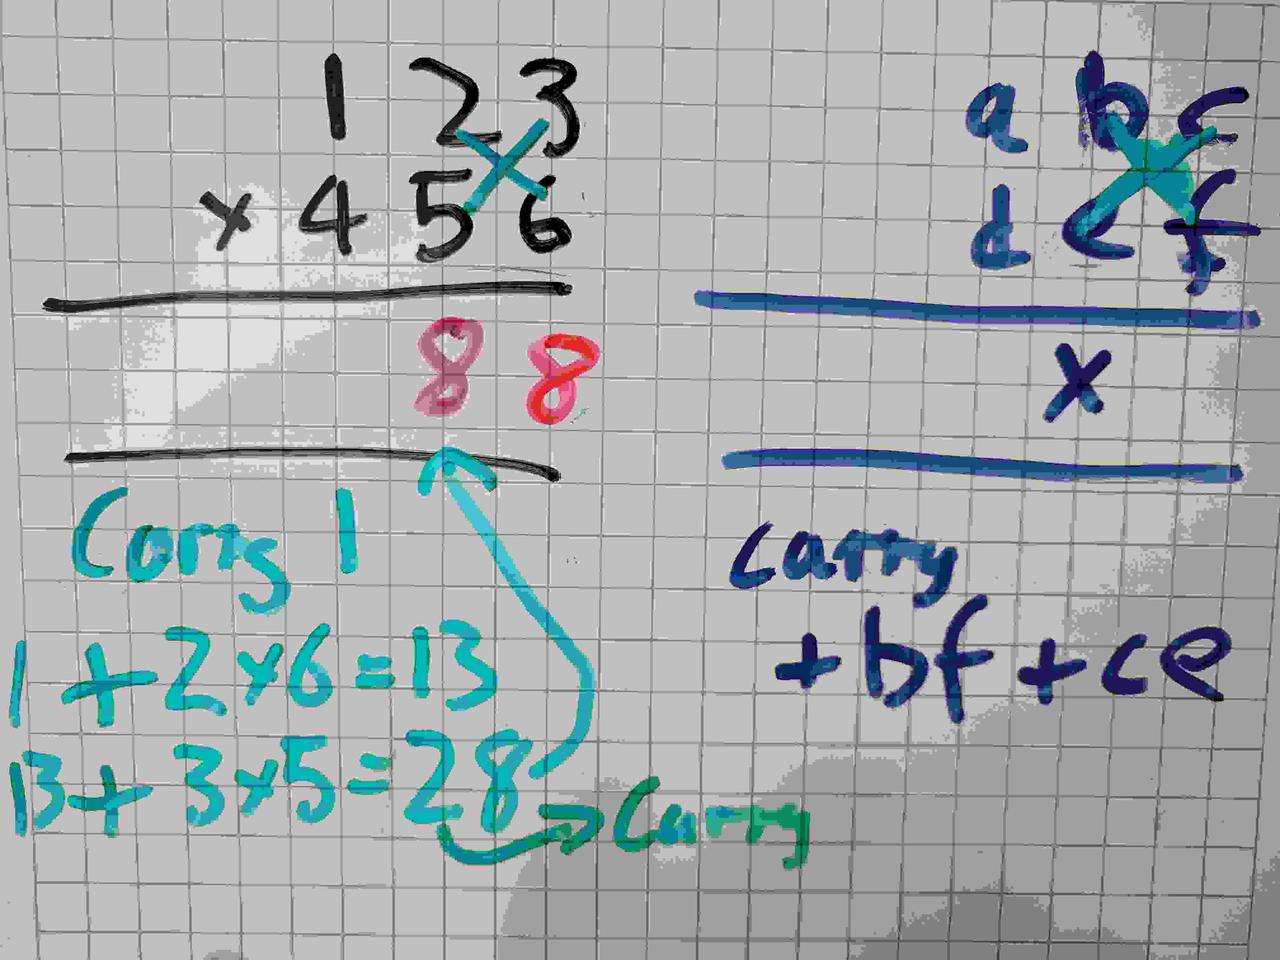 1 2 3
× 4 5 6
8 8
Carry 1
1 + 2×6 = 13
13 + 3×5 = 28 → Carry
a b c
d e f
x
carry
+ bf + ce